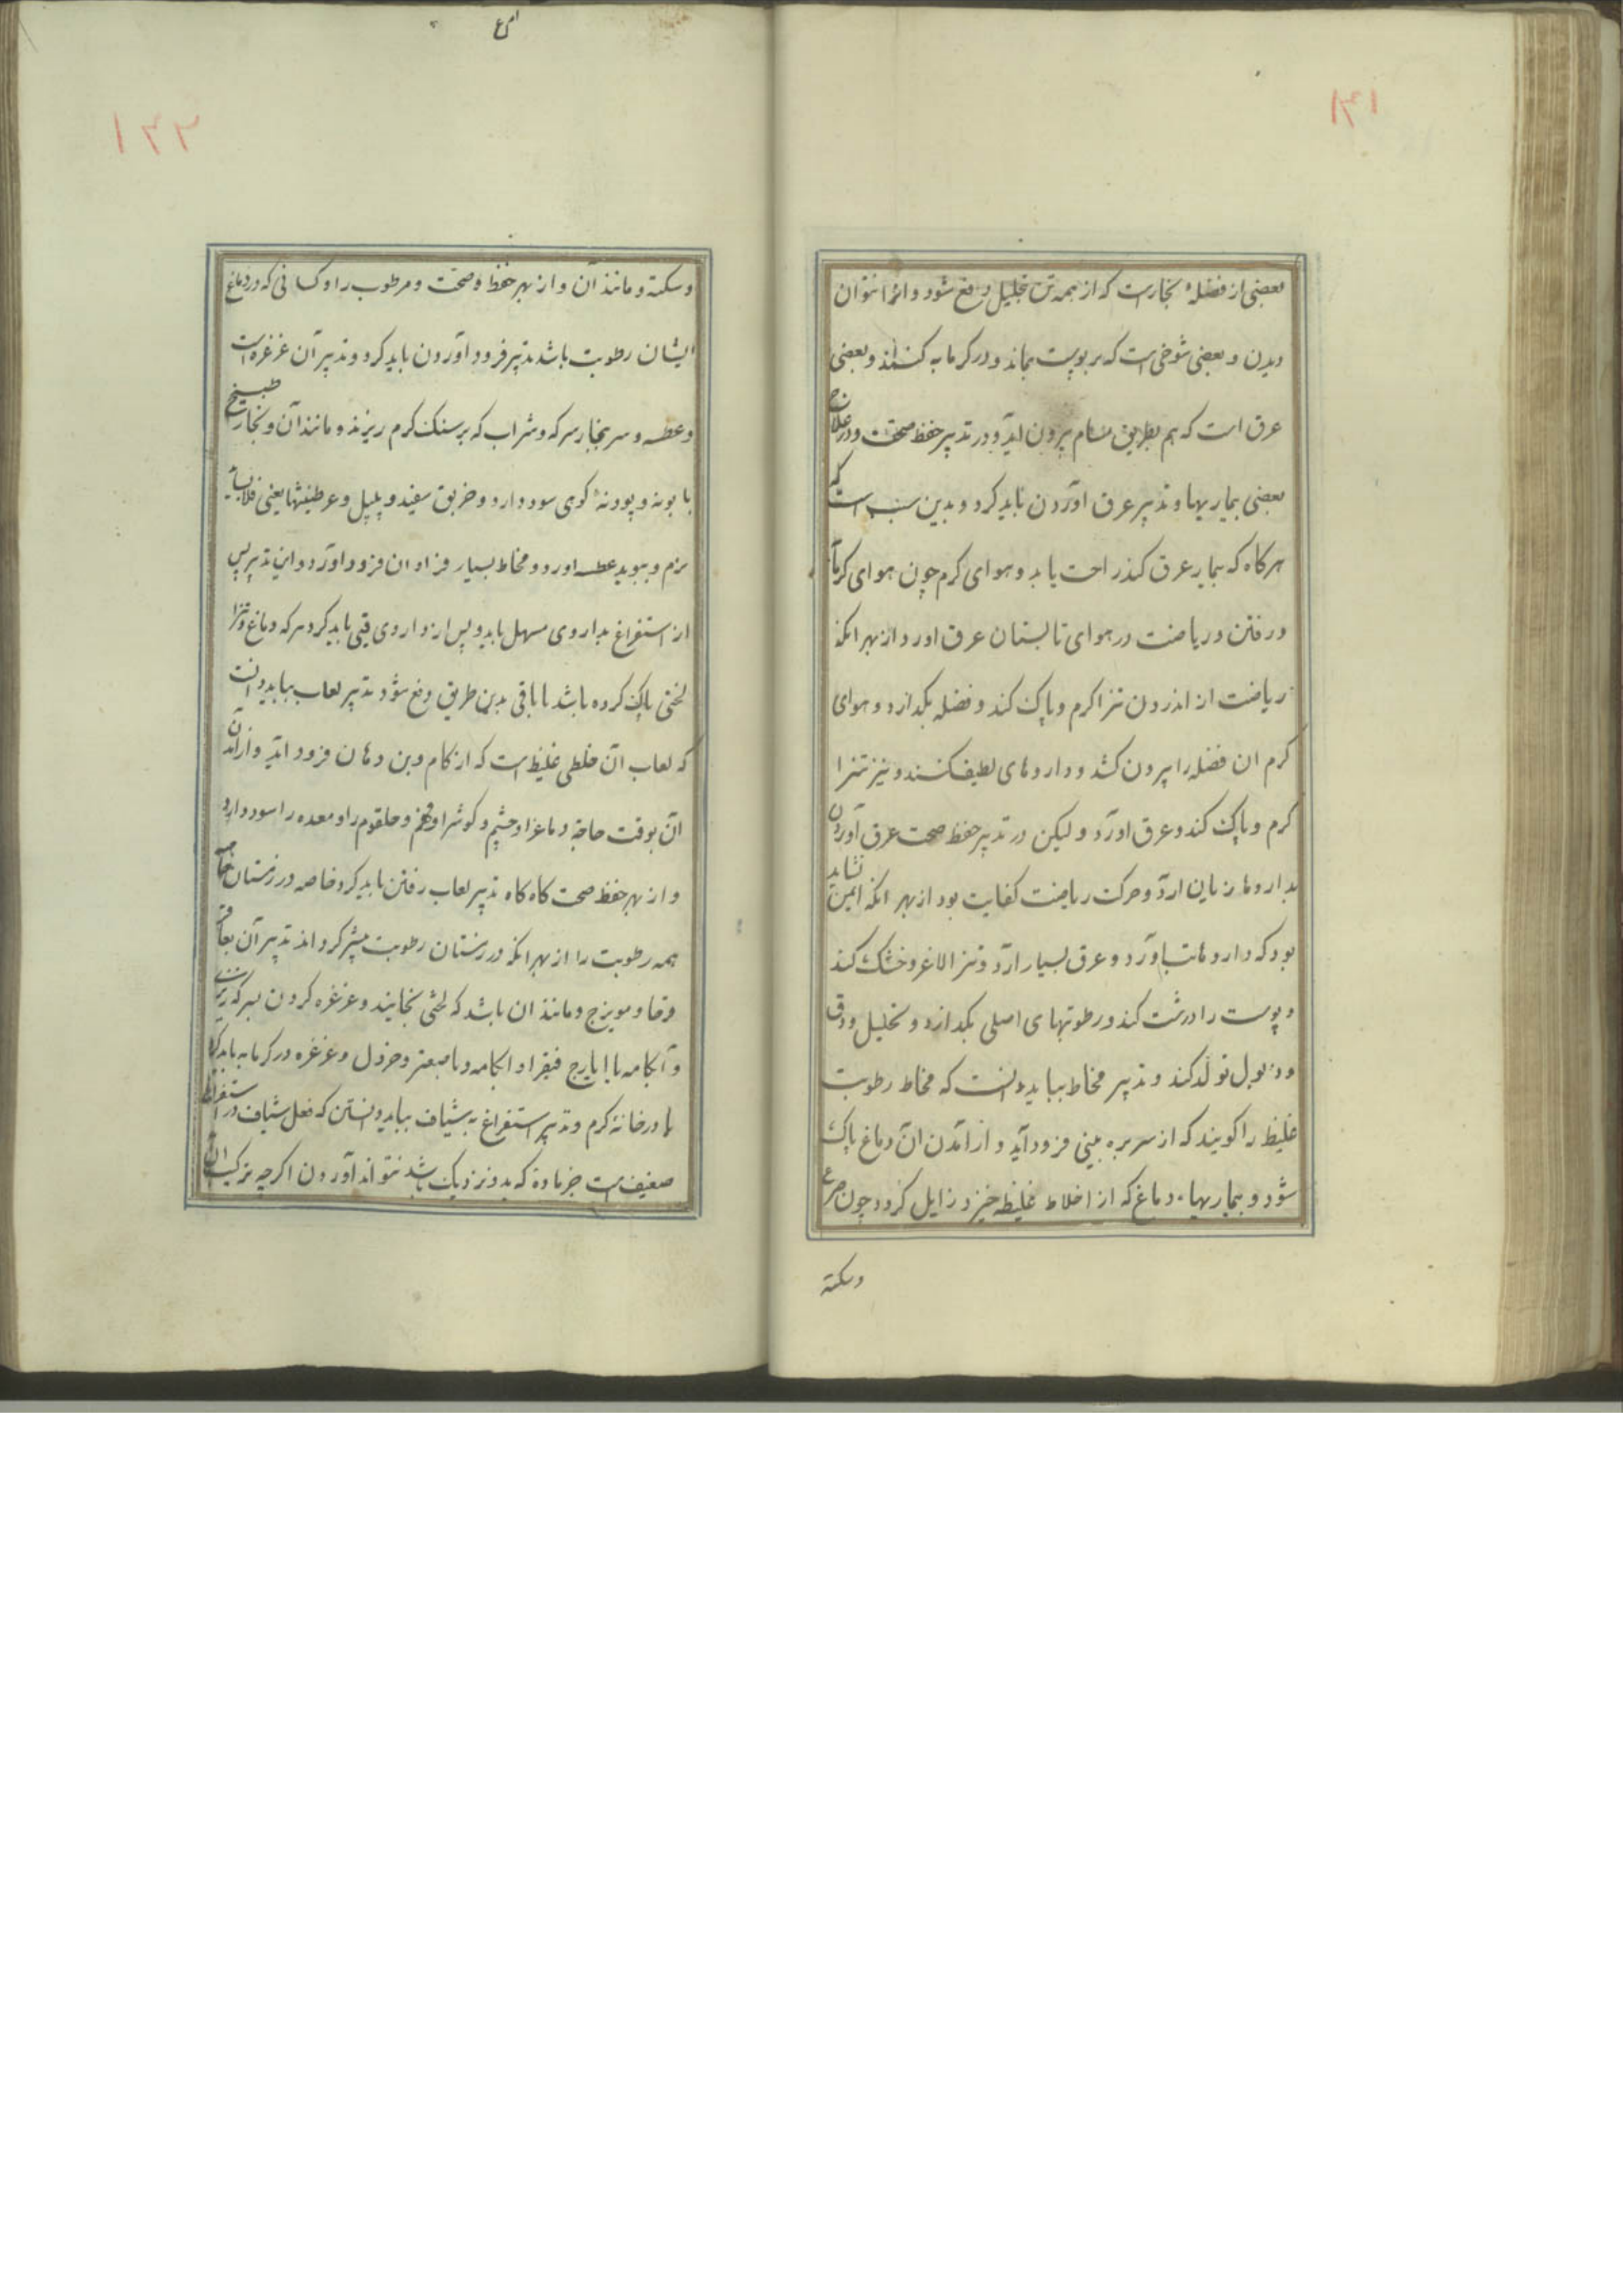 ۱۴۱
بعضی از فضلهٔ بخارست که از همه تن بتحلیل دفع شود و انرا نتوان
دیدن و بعضی شوخی است که بر پوست بماند و در کرمابه کنند و بعضی
عرق است که هم بطریق مسام بیرون اید و در تدبیر حفظ صحت و در علاج
بعضی بیماریها و تدبیر عرق آوردن باید کرد و بدین سبب است که
هرکاه که بیمار عرق کند راحت یابد و هوای کرم چون هوای کرمابه
در رفتن و ریاضت در هوای تابستان عرق اورد از بهر انکه
ریاضت از اندرون تنرا کرم و پاک کند و فضله بکدازد و هوای
کرم ان فضله را بیرون کشد و داروهای لطیف کننده نیز تنرا
کرم و پاک کند و عرق اورد و لیکن در تدبیر حفظ صحت عرق آوردن
بداروها زیان ارد و حرکت ریاضت کفایت بود از بهر انکه ایمن نشاید
بود که داروها تب اورد و عرق بسیار ارد و تنرا لاغر و خشک کند
و پوست را درشت کند و رطوبتهای اصلی بکدازد و تحلیل و دق
و ذبول تولد کند و تدبیر مخاط بباید دانست که مخاط رطوبت
غلیظ را کویند که از سر بره بینی فرود آید و از آمدن ان دماغ پاک
شود و بیماریهاء دماغ که از اخلاط غلیظ خیزد زایل کردد چون صرع
وسکته
۱۴۲
وسکته و مانند آن و از بهر حفظ صحت و مرطوب را و کسانی که در دماغ
ایشان رطوبت باشد تدبیر فرود آوردن باید کرد و تدبیر آن غرغره است
و عطسه و سر ببخار سرکه و شراب که بر سنک کرم ریزند و مانند آن و بخار طبیخ
بابونه و پودنهٔ کوی سود دارد و خربق سفید و پلپل و عرطنیثا یعنی
نرم و ببوید عطسه اورد و مخاط بسیار فراوان فرود اورد و این تدبیر پس
از استفراغ بداروی مسهل باید و پس از داروی قیی باید کرد هر که دماغ و تنرا
لختی پاک کرده باشد تا باقی بدین طریق دفع شود تدبیر لعاب بباید دانست
که لعاب آن خلطی غلیظ است که از کام و بن دهان فرود اید و از آمدن
آن بوقت حاجة دماغ را و چشم و کوش را و فم و حلقوم را و معده را سود دارد
و از بهر حفظ صحت کاه کاه تدبیر لعاب رفتن باید کرد خاصه در زمستان
همه رطوبت را از بهر انکه در زمستان رطوبت بیشتر کرد اند تدبیر آن
و مویزج و مانند ان باشد که لختی بخایند و غرغره کردن بسرکه
و آبکامه با ایارج فیقرا و ابکامه و با صعتر و خردل و غرغره در کرمابه باید کرد
یا در خانهٔ کرم و تدبیر استفراغ به شیاف بباید دانستن که فعل شیاف در استفراغ
ضعیف است جز ماده که بدو نزدیک باشد نتواند آوردن اکرچه ترکیب ان